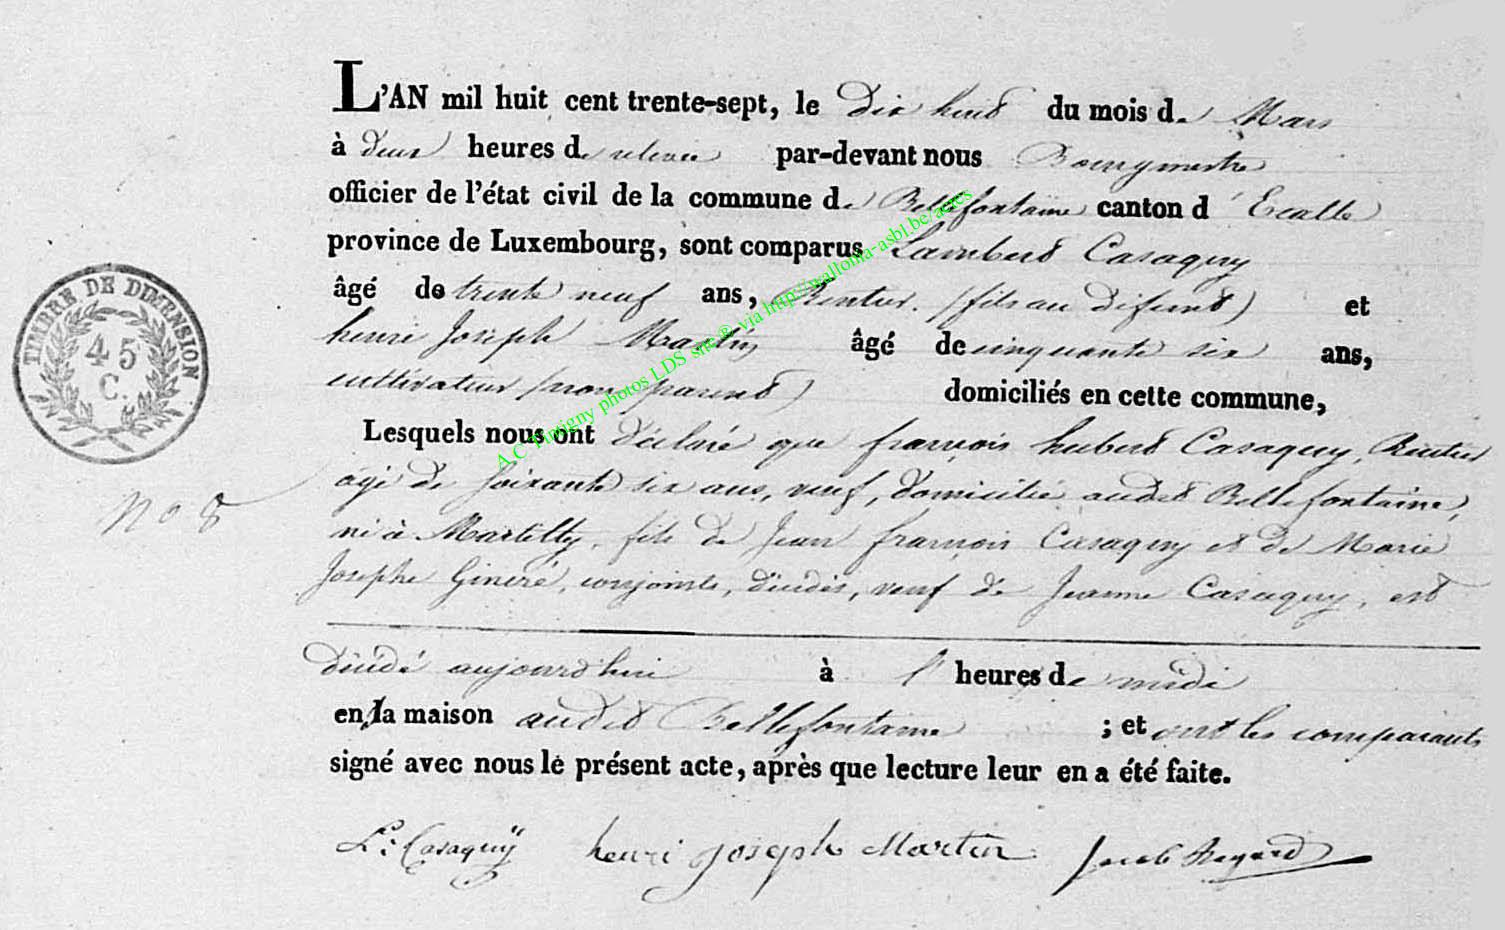 L'AN mil huit cent trente-sept, le dix huit du mois de Mars
à deux heures de relevée par-devant nous Bourgmestre
officier de l'état civil de la commune de Bellefontaine canton d'Etalle
province de Luxembourg, sont comparus Lambert Casaquy
âgé de trente neuf ans, Rentier. (fils au défunt) et
henri Joseph Martin âgé de cinquante six ans,
cultivateur (non parent) domiciliés en cette commune,
Lesquels nous ont déclaré que françois hubert Casaquy, Rentier
agé de soixante six ans, veuf, domicilié audit Bellefontaine,
né à Martilly, fils de Jean françois Casaquy et de Marie
Josephe Gineré, conjoints, décédés, veuf de Jeanne Casaquy, est
décédé aujourd'hui à l'heures de midi
en la maison audit Bellefontaine ; et ont les comparants
signé avec nous le présent acte, après que lecture leur en a été faite.
L: Casaquÿ henri joseph Martin Jacob Regard
TIMBRE DE DIMENSION
45
C.
No 8
A.C Tintigny photos LDS site® via http://wallonia-asbl.be/actes